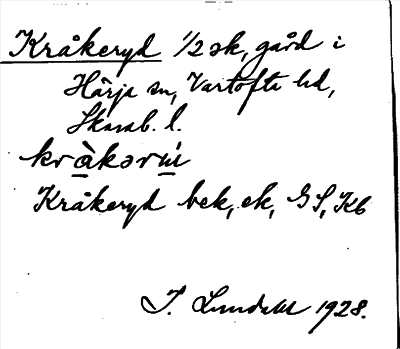 Kråkeryd 1/2 sk, gård i
Härja sn, Vartofta hd,
Skarab. l.
kràkərúi
Kråkeryd bek, ek, GS, Kb
J. Lundahl 1928.